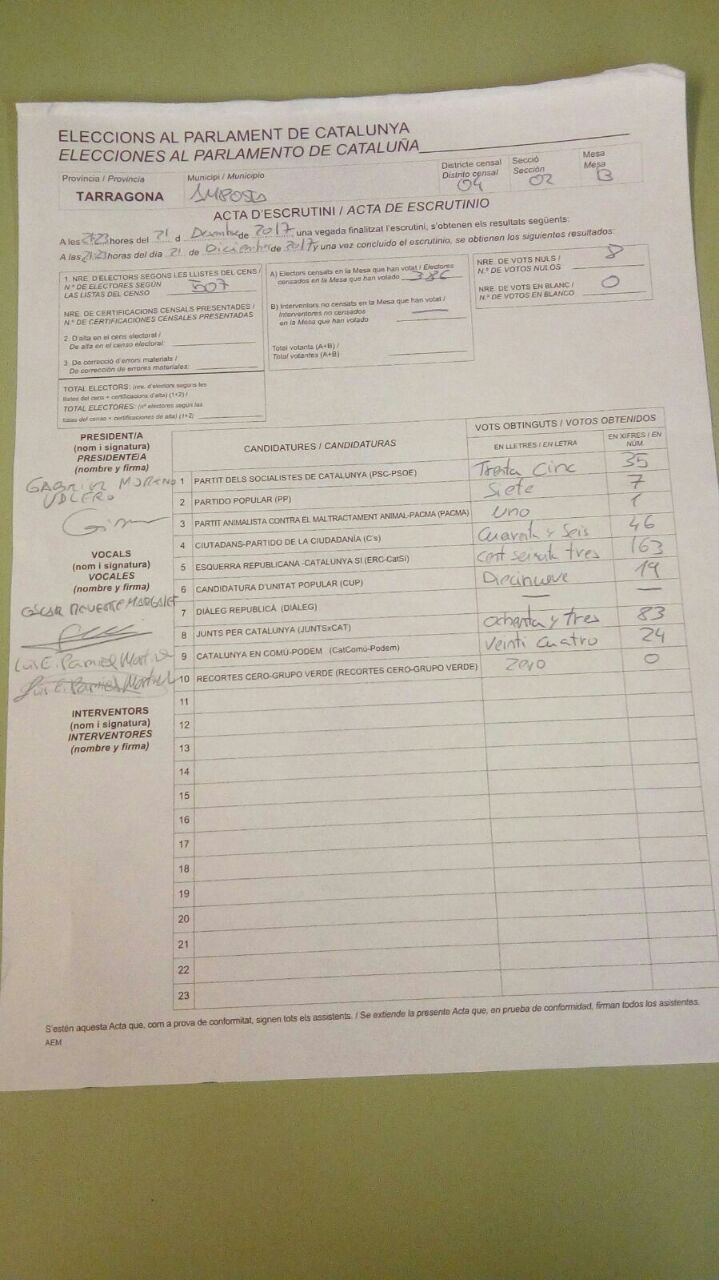 ELECCIONS AL PARLAMENT DE CATALUNYA
ELECCIONES AL PARLAMENTO DE CATALUÑA
Província / Provincia
TARRAGONA
Municipi / Municipio
AMPOSTA
Districte censal
Distrito censal
04
Secció
Sección
02
Mesa
Mesa
B
ACTA D'ESCRUTINI / ACTA DE ESCRUTINIO
A les 21:23 hores del 21 d Desembre de 2017 una vegada finalitzat l'escrutini, s'obtenen els resultats següents:
A las 21:23 horas del día 21 de Diciembre de 2017 y una vez concluido el escrutinio, se obtienen los siguientes resultados:
1. NRE. D'ELECTORS SEGONS LES LLISTES DEL CENS /
N.º DE ELECTORES SEGÚN
LAS LISTAS DEL CENSO 507
NRE. DE CERTIFICACIONS CENSALS PRESENTADES /
N.º DE CERTIFICACIONES CENSALES PRESENTADAS
2. D'alta en el cens electoral /
De alta en el censo electoral:
3. De correcció d'errors materials /
De corrección de errores materiales:
TOTAL ELECTORS: (nre. d'electors segons les
llistes del cens + certificacions d'alta) (1+2) /
TOTAL ELECTORES: (nº electores según las
listas del censo + certificaciones de alta) (1+2)
A) Electors censats en la Mesa que han votat / Electores
censados en la Mesa que han votado 386
B) Interventors no censats en la Mesa que han votat /
Interventores no censados
en la Mesa que han votado —
Total votants (A+B) /
Total votantes (A+B)
NRE. DE VOTS NULS /
N.º DE VOTOS NULOS 8
NRE. DE VOTS EN BLANC /
N.º DE VOTOS EN BLANCO 0
PRESIDENT/A
(nom i signatura)
PRESIDENTE/A
(nombre y firma)
GABRIEL MORENO
VOCALS
(nom i signatura)
VOCALES
(nombre y firma)
OSCAR MARGALEF
Luis E. Martinez
INTERVENTORS
(nom i signatura)
INTERVENTORES
(nombre y firma)
CANDIDATURES / CANDIDATURAS
VOTS OBTINGUTS / VOTOS OBTENIDOS
EN LLETRES / EN LETRA
EN XIFRES / EN NÚM.
1 PARTIT DELS SOCIALISTES DE CATALUNYA (PSC-PSOE) Trenta cinc 35
2 PARTIDO POPULAR (PP) Siete 7
3 PARTIT ANIMALISTA CONTRA EL MALTRACTAMENT ANIMAL-PACMA (PACMA) uno 1
4 CIUTADANS-PARTIDO DE LA CIUDADANÍA (C's) Cuarenta y Seis 46
5 ESQUERRA REPUBLICANA -CATALUNYA SÍ (ERC-CatSí) Cent seixanta tres 163
6 CANDIDATURA D'UNITAT POPULAR (CUP) Diecinueve 19
7 DIÀLEG REPUBLICÀ (DIÀLEG) — —
8 JUNTS PER CATALUNYA (JUNTSxCAT) ochenta y tres 83
9 CATALUNYA EN COMÚ-PODEM (CatComú-Podem) Veinti cuatro 24
10 RECORTES CERO-GRUPO VERDE (RECORTES CERO-GRUPO VERDE) Zero 0
11
12
13
14
15
16
17
18
19
20
21
22
23
S'estén aquesta Acta que, com a prova de conformitat, signen tots els assistents. / Se extiende la presente Acta que, en prueba de conformidad, firman todos los asistentes.
AEM